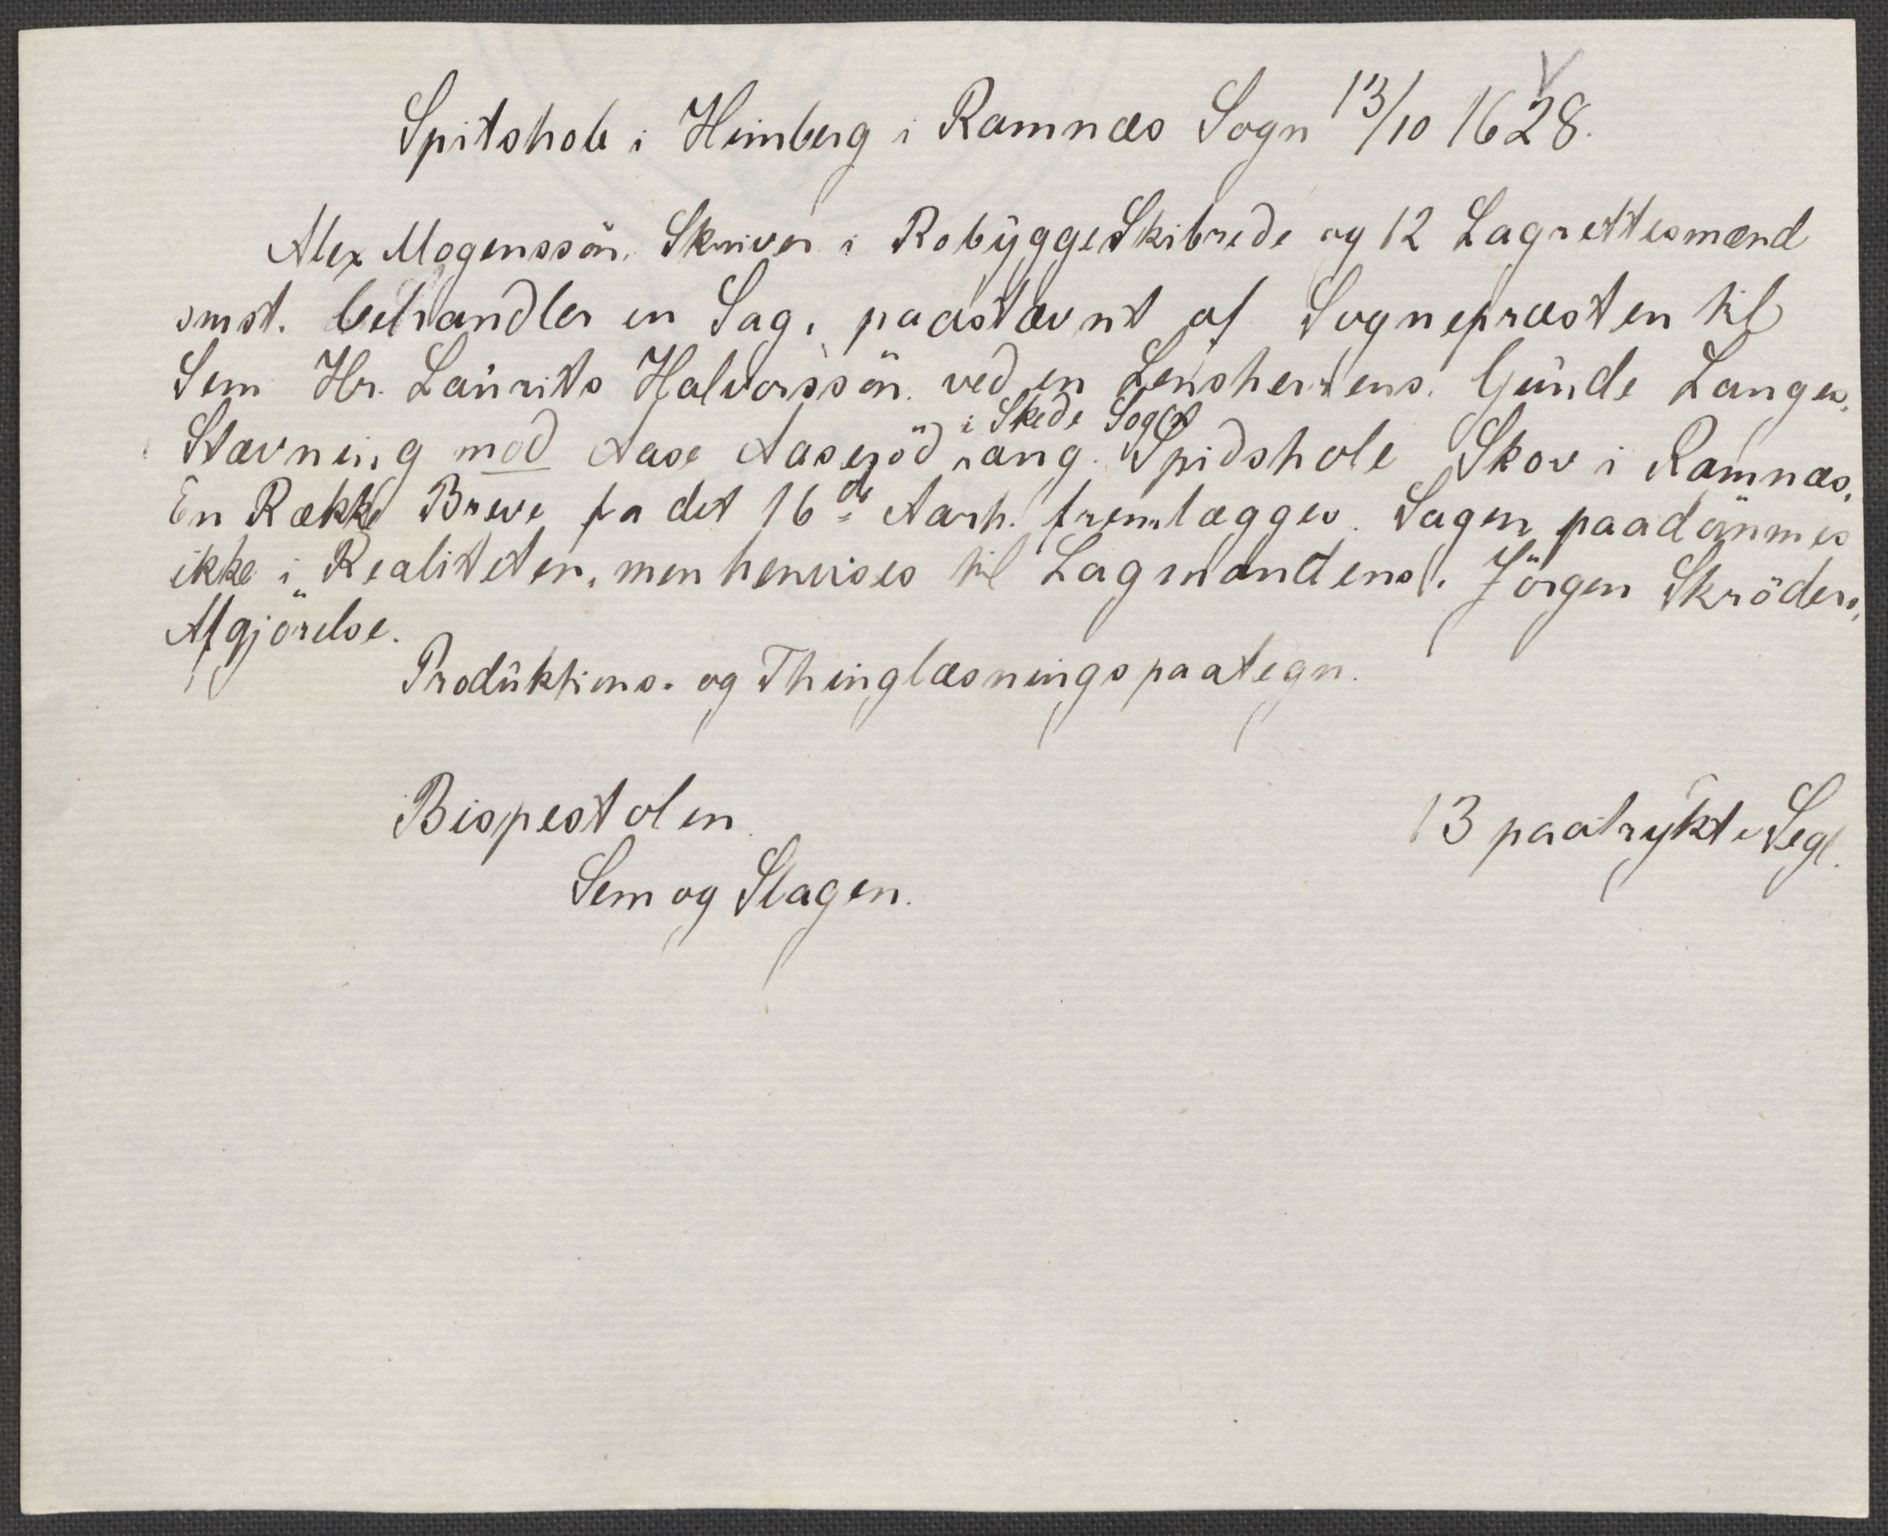 Spitshole i Heimberg i Ramnæs Sogn 13/10 1628.
Alex Mogenssön, Skriver i Robÿgge Skibrede og 12 Lagrettesmænd
smst. behandler en Sag, paastævnt af Sognepræsten til
Sem Hr. Laurits Halvorssön ved en Lensherrens, Gunde Langes,
i Skede Sogn
Stævning mod Aase Aasejöd, ang. Spidshole Skov i Ramnæs.
En Række Breve fra det 16de Aarh. fremlægges. Sagen paadömmes
ikke i Realiteten, men henvises til Lagmandens, Jörgen Skröders,
Afgjörelse.
Produktions- og Thinglæsningspaategn.
Bispestolen.
13 paatrykte Segl.
Sem og Slagen.